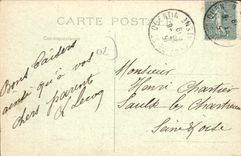 CARTE POSTALE
Bons baisers
ainsi qu'à vos
chers parents
L Lecoq
Monsieur
Henri Chartier
Saulx les Chartreux
Seine et Oise